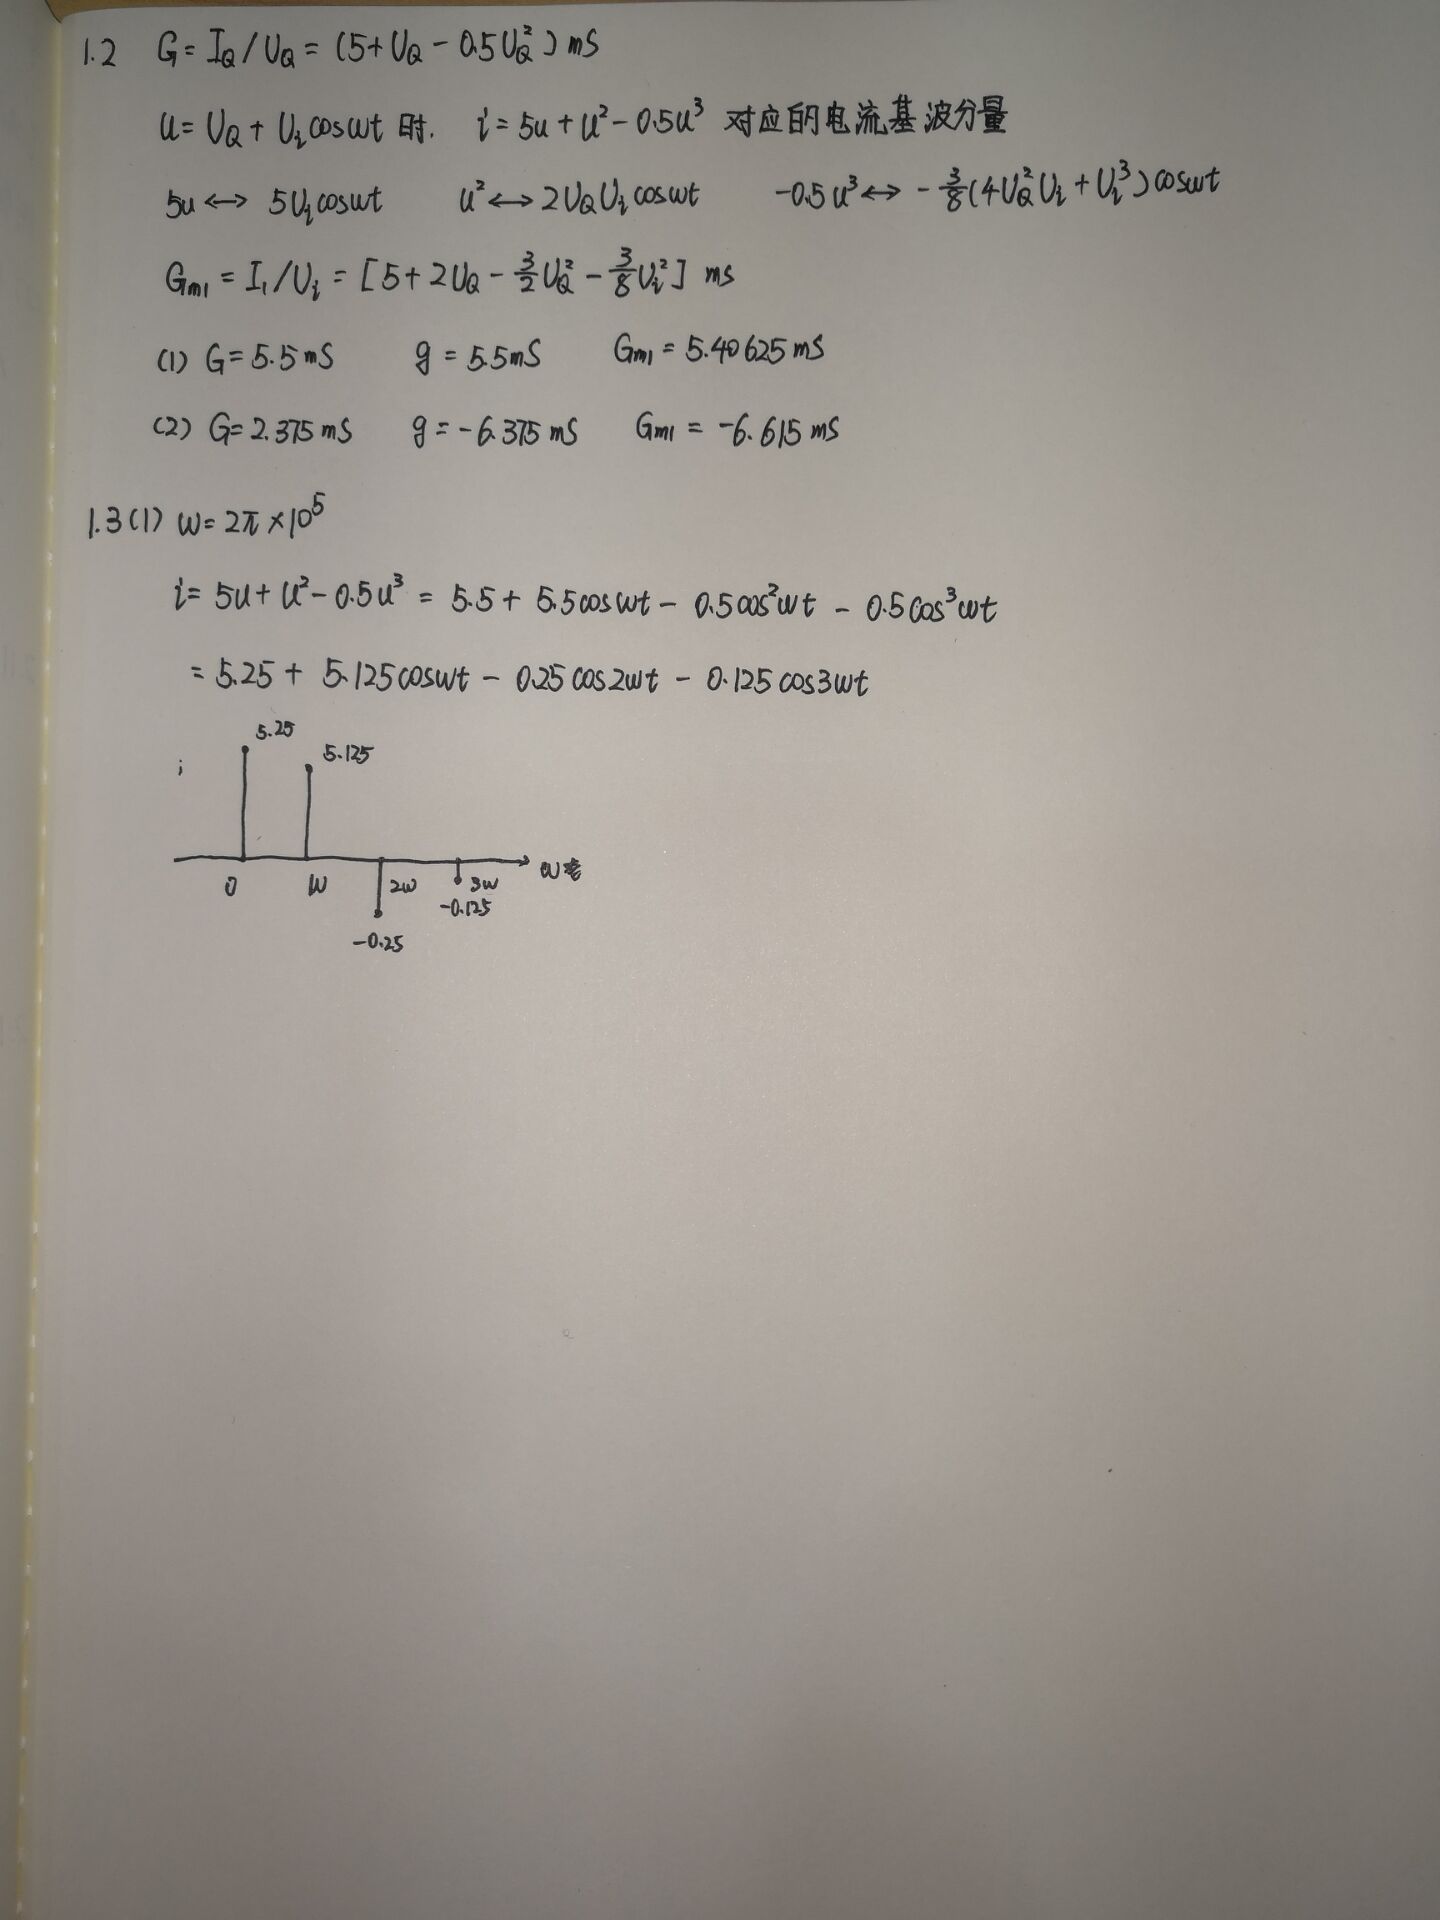 1.2 G = I_Q / U_Q = (5+U_Q - 0.5U_Q²) mS
u = U_Q + U_i cosωt 时. i = 5u + u² - 0.5u³ 对应的电流基波分量
5u ↔ 5U_i cosωt u² ↔ 2U_Q U_i cosωt -0.5u³ ↔ -3/8(4U_Q²U_i + U_i³) cosωt
G_m1 = I₁/U_i = [5 + 2U_Q - 3/2 U_Q² - 3/8 U_i²] ms
(1) G = 5.5mS g = 5.5mS G_m1 = 5.40625mS
(2) G = 2.375mS g = -6.375mS G_m1 = -6.615mS
1.3(1) ω = 2π×10⁵
i = 5u + u² - 0.5u³ = 5.5 + 5.5cosωt - 0.5cos²ωt - 0.5cos³ωt
= 5.25 + 5.125cosωt - 0.25cos2ωt - 0.125cos3ωt
5.25
i 5.125
0 ω 2ω 3ω ω
-0.125
-0.25